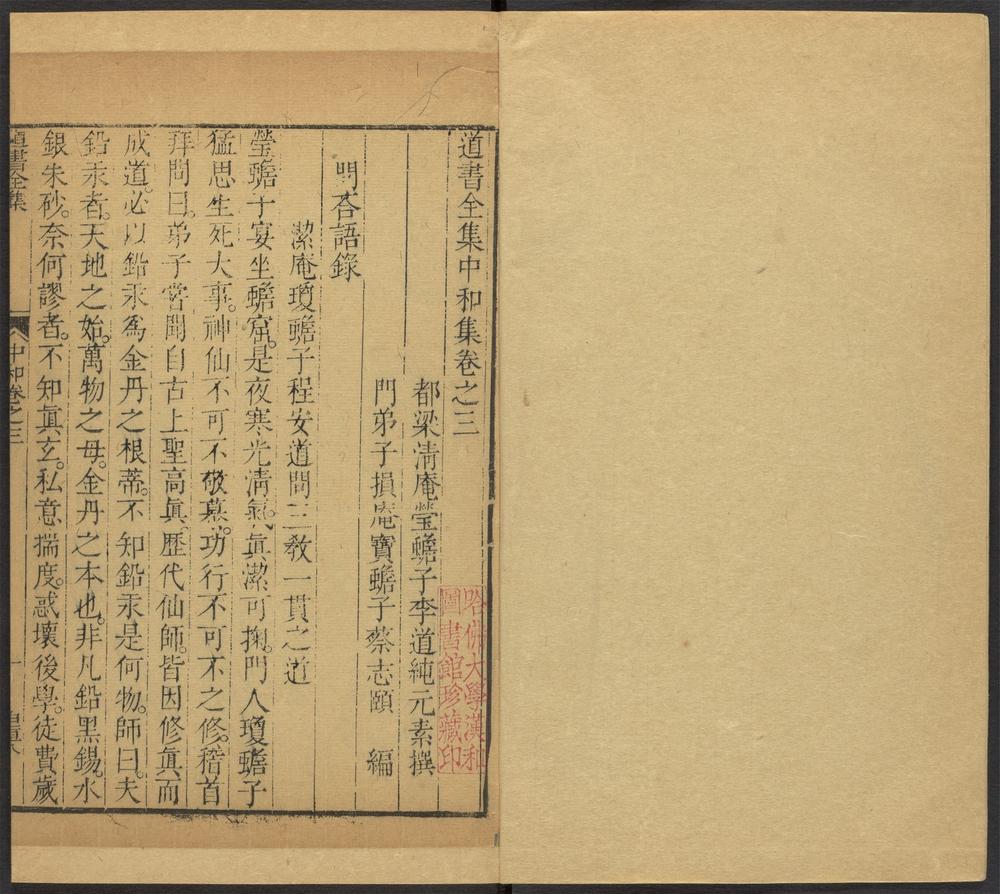 道書全集中和集卷之三
都梁清庵瑩蟾子李道純元素撰
門弟子損庵寶蟾子蔡志頤 編
問荅語錄
潔庵瓊蟾子程安道問三教一貫之道
瑩蟾子宴坐蟾窟。是夜寒光清氣、眞潔可掬。門人瓊蟾子
猛思生死大事。神仙不可不敬慕。功行不可不之修。稽首
拜問曰。弟子嘗聞自古上聖高眞。歷代仙師。皆因修眞而
成道。必以鉛汞爲金丹之根蒂。不知鉛汞是何物。師曰。夫
鉛汞者。天地之始。萬物之母。金丹之本也。非凡鉛黑錫。水
銀朱砂。奈何謬者。不知眞玄。私意揣度。惑壞後學。徒費歲
道書全集
中和卷之三
一
哈佛大學漢和
圖書館珍藏印